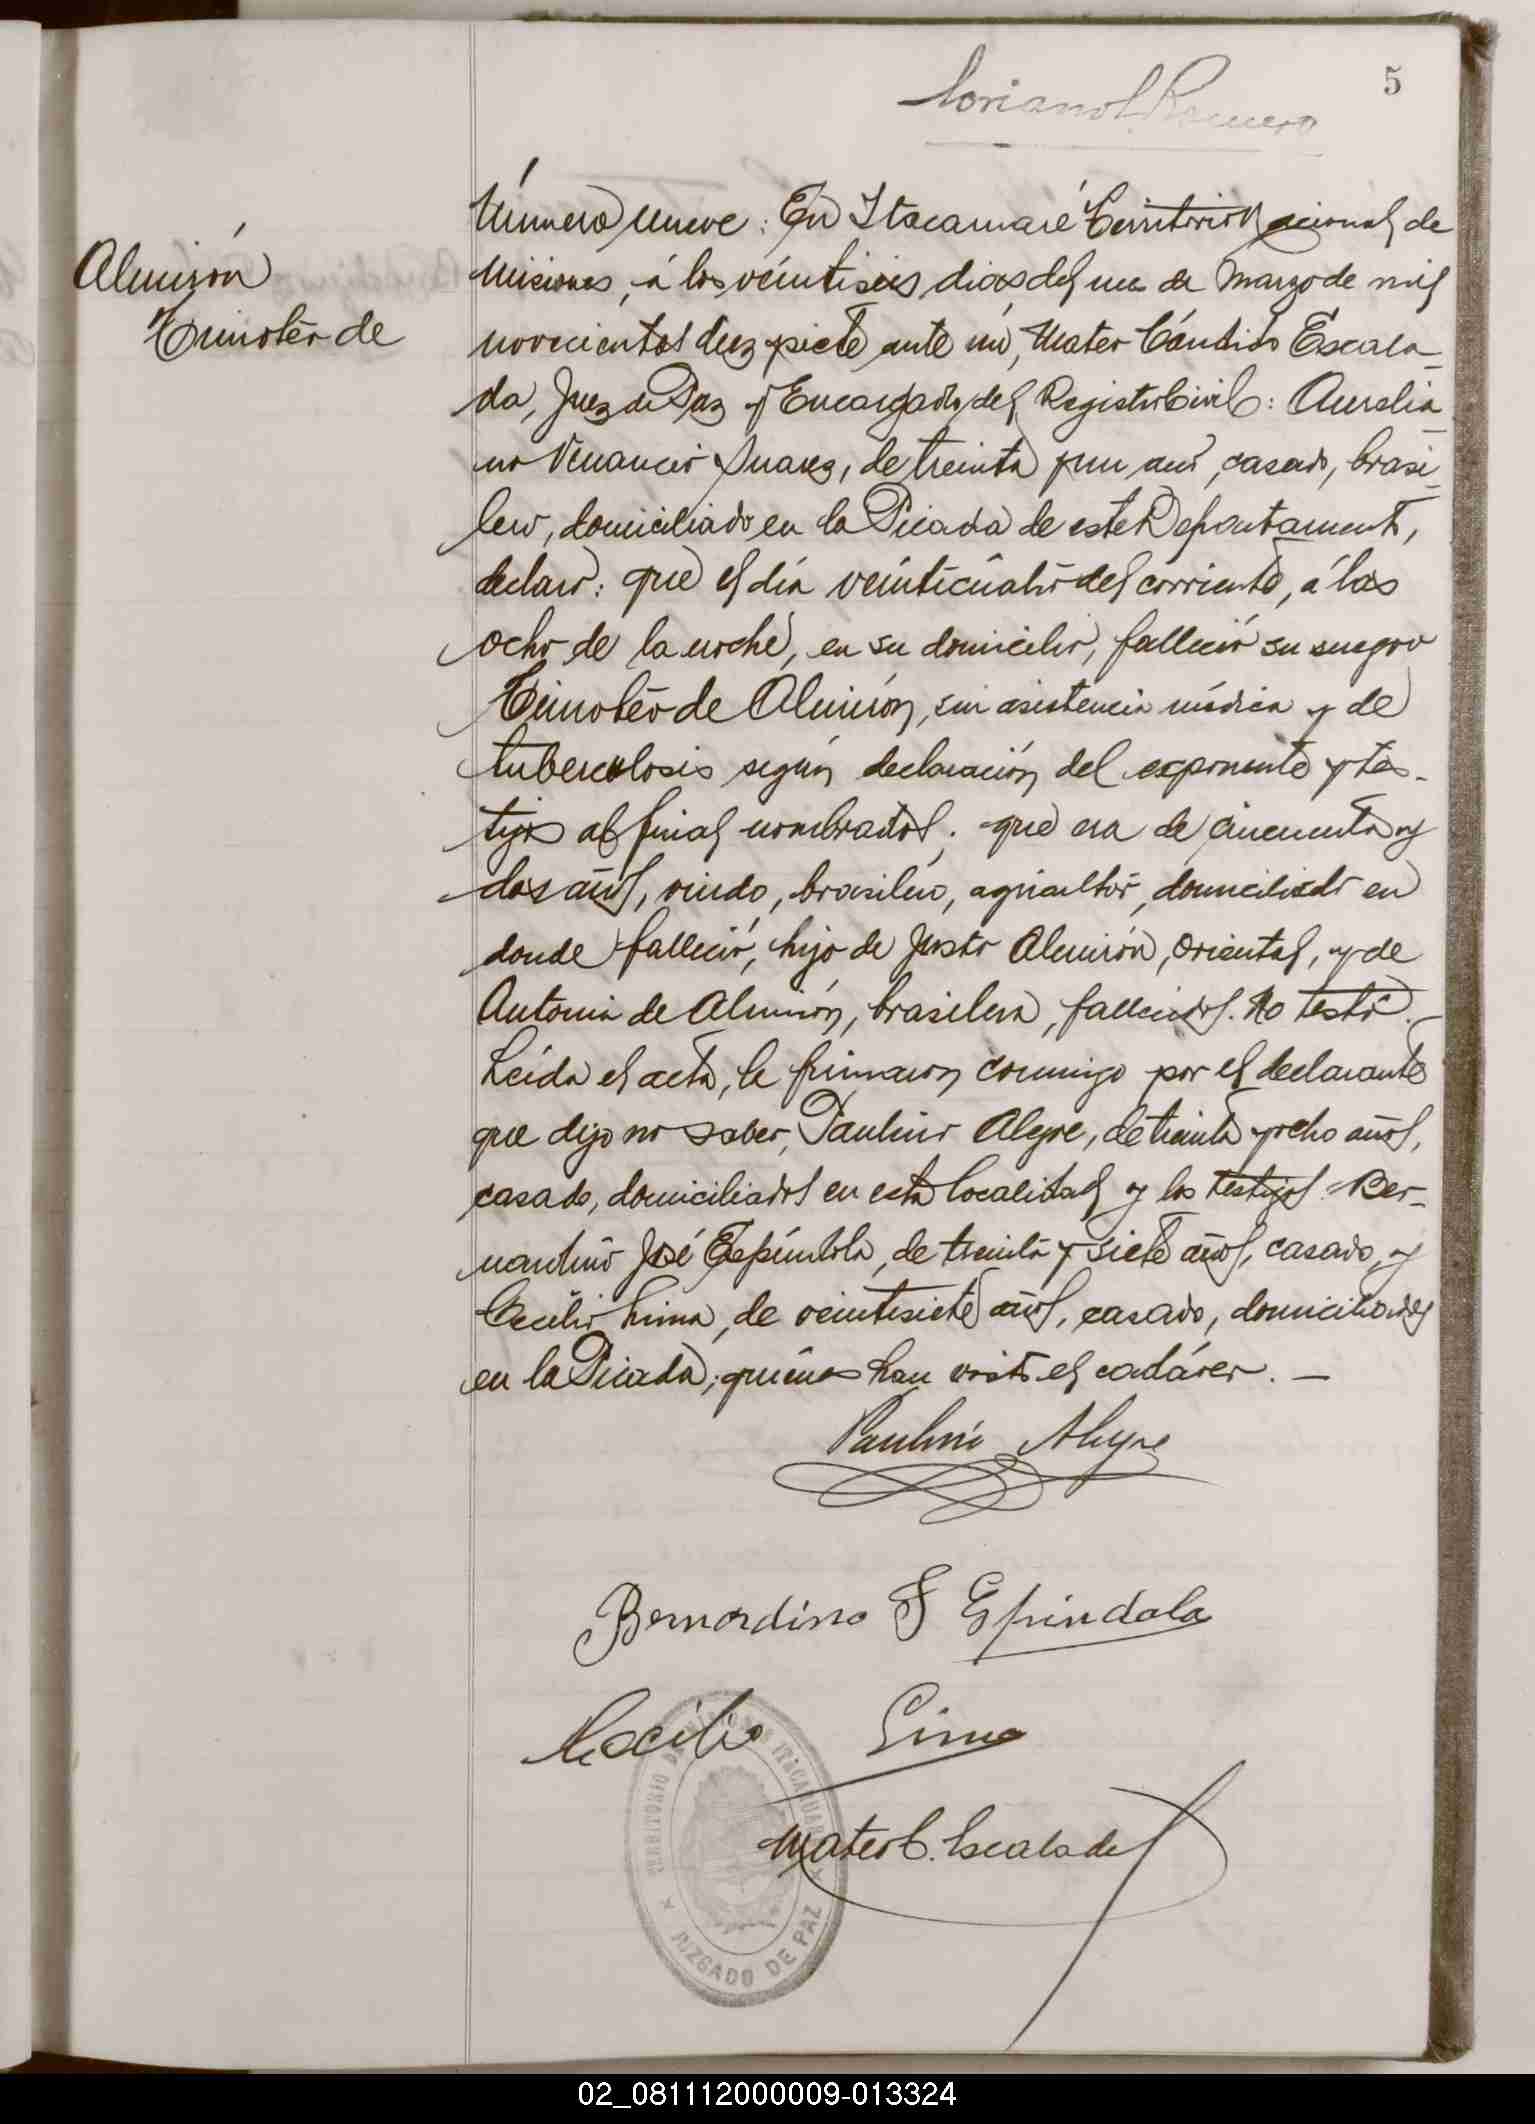 5
Romero
Almirón
Timoteo de
Número nueve: En Itacaruaré Territorio Nacional de
Misiones, á los veintiseis dias del mes de Marzo de mil
novecientos diez y siete ante mí, Mateo Cándido Escala-
da, Juez de Paz y Encargado del Registro Civil: Aurelia-
no Venancio Suarez, de treinta y un años, casado, brasi-
lero, domiciliado en la Picada de este Departamento,
declaró: que el día veinticuatro del corriente, á las
ocho de la noche, en su domicilio, falleció su suegro
Timoteo de Almirón, sin asistencia médica y de
tuberculosis según declaración del exponente y tes-
tigos al final nombrados; que era de cincuenta y
dos años, viudo, brasilero, agricultor, domiciliado en
donde falleció, hijo de Justo Almirón, oriental, y de
Antonia de Almirón, brasilera, fallecidos. No testó.
Leída el acta, la firmaron conmigo por el declarante
que dijo no saber, Paulino Alegre, de treinta y ocho años,
casado, domiciliados en esta localidad y los testigos: Ber-
nardino José Espíndola, de treinta y siete años, casado, y
Cecilio Lima, de veintisiete años, casado, domiciliados
en la Picada; quienes han visto el cadáver. —
Paulino Alegre
Bernardino J Espindola
Cecilio Lima
Mateo C. Escalada
TERRITORIO DE MISIONES ITACARUARÉ
JUZGADO DE PAZ
02_081112000009-013324